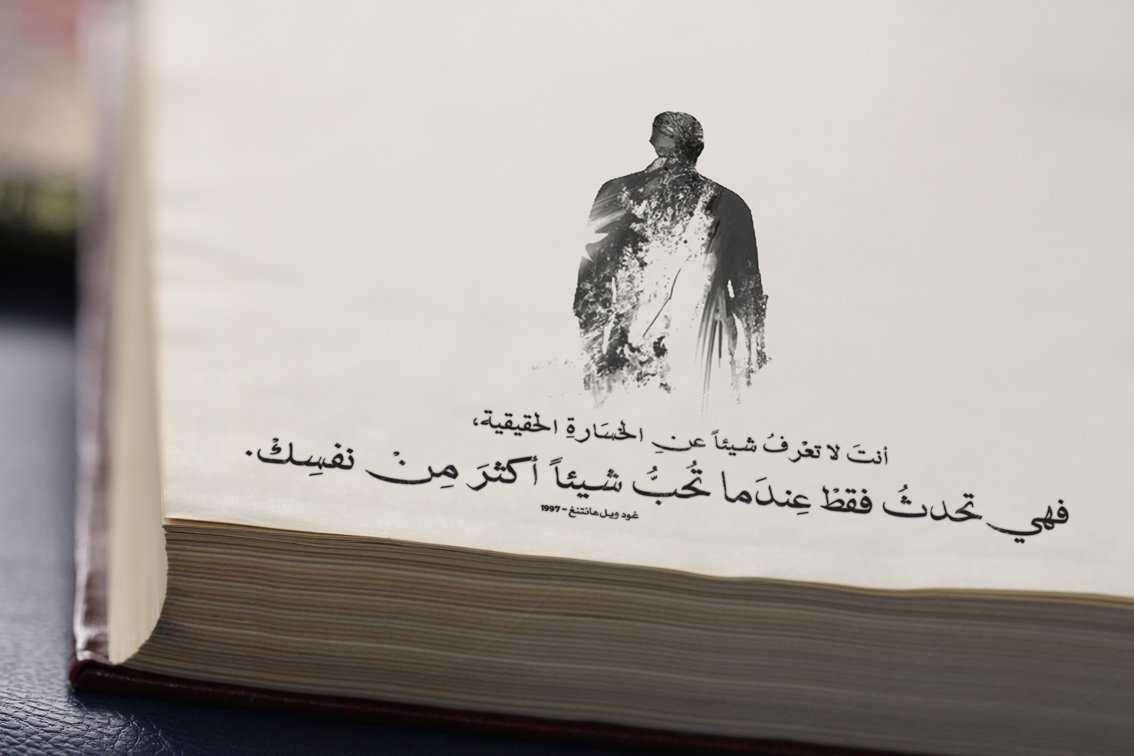 أنتَ لا تعْرفُ شيئاً عنِ الخسَارةِ الحقيقية،
فهي تحدثُ فقطْ عِندَما تُحبُّ شيئاً أكثرَ مِنْ نفسِكْ.
غود ويل هانتنغ - 1997